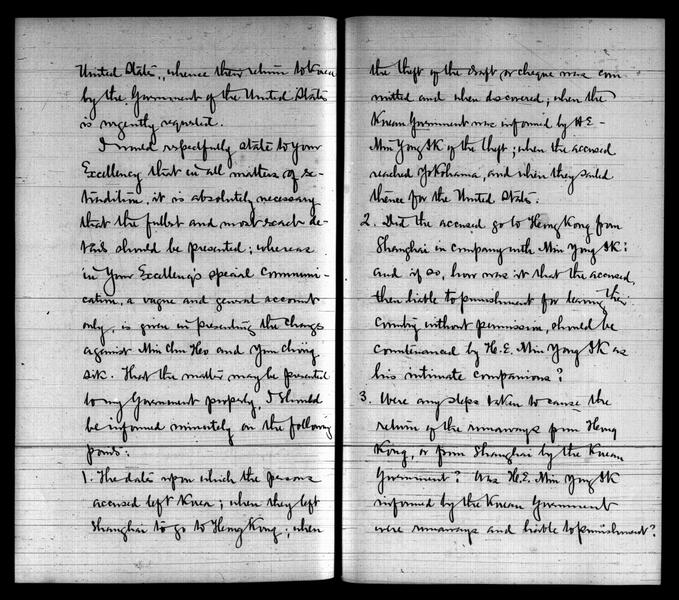 United States, whence their return to Korea
by the Government of the United States
is urgently requested.
I would respectfully state to your
Excellency that in all matters of ex-
tradition, it is absolutely necessary
that the fullest and most exact de-
tails should be presented; whereas
in Your Excellency's special communi-
cation, a vague and general account
only, is given in presenting the charges
against Min Chu Ho and Yun Chiig
sik. That the matter may be presented
to my Government properly, I should
be informed minutely on the following
points:
1. The date upon which the persons
accused left Korea; when they left
Shanghai to go to Hong Kong; when
the theft of the draft or cheque was com-
mitted and when discovered; when the
Korean Government was informed by H.E-
Min Yong IK of the theft; when the accused
reached Yokohama, and when they sailed
thence for the United States.
2. Did the accused go to Hong Kong from
Shanghai in company with Min Yong IK:
and if so, how was it that the accused,
then liable to punishment for leaving their
Country without permission, should be
countenanced by H.E. Min Yong IK as
his intimate companions?
3. Were any steps taken to cause the
return of the runaways from Hong
Kong, or from Shanghai by the Korean
Government? Was H.E. Min Yong IK
informed by the Korean Government
were runaways and liable to punishment?